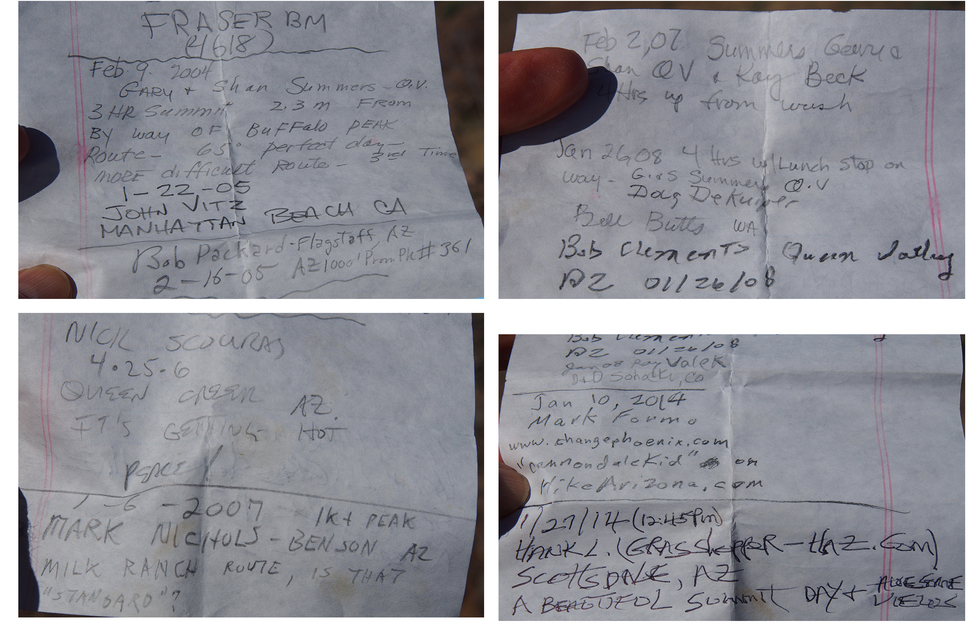 FRASER BM
(4618)
Feb 9, 2004
GARY + Shan Summers - Q.V.
3 HR Summit 2.3 m FROM
By way OF BUFFALO PEAK
Route - 65° perfect day -
more difficult Route - 3rd Time
1-22-05
JOHN VITZ
MANHATTAN BEACH CA
Bob Packard - Flagstaff, AZ
2-16-05 AZ 1000' Prom Pk # 361
Feb 2, 07 Summers Gary &
Shan QV & Kay Beck
4 Hrs up from wash
Jan 26, 08 4 Hrs w/Lunch stop on
way - Summers Q.V
Doug
Butts WA
Bob Clements Queen Valley
AZ 01/26/08
NICK SCOURAS
4.25.6
QUEEN CREEK AZ.
IT'S GETTING HOT
PEACE!
-6-2007 1K+ PEAK
MARK NICHOLS - BENSON AZ
MILK RANCH ROUTE, IS THAT
"STANDARD"?
Bob Clements
AZ 01/26/08
Ray Valek
CO
Jan 10, 2014
Mark Formo
www.changephoenix.com
"cannondaleKid" on
HikeArizona.com
1/27/14 (12:45PM)
HANK L. (GRASSHOPPER - HAZ.COM)
SCOTTSDALE, AZ
A BEAUTIFUL SUMMIT DAY + AWESOME
VIEWS